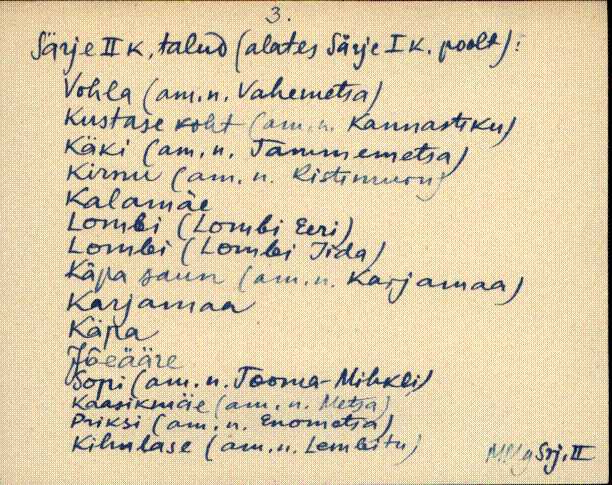 3.
Särje II k. talud (alates Särje I k. poolt):
Vohla (am. n. Vahemetsa)
Kustase koht (am. n. Kannastiku)
Käki (am. n. Tammemetsa)
Kirmu (am. n.
Kalamäe
Lombi (Lombi Eeri)
Lombi (Lombi Iida)
Käpa saun (am. n. Karjamaa)
Karjamaa
Käpa
Jõeääre
Sopi (am. n. Tooma-Mihkli)
Kaasikmäe (am. n. Metsa)
Priksi (am. n. Enometsa)
(am. n. Lembitu)
Srj. II